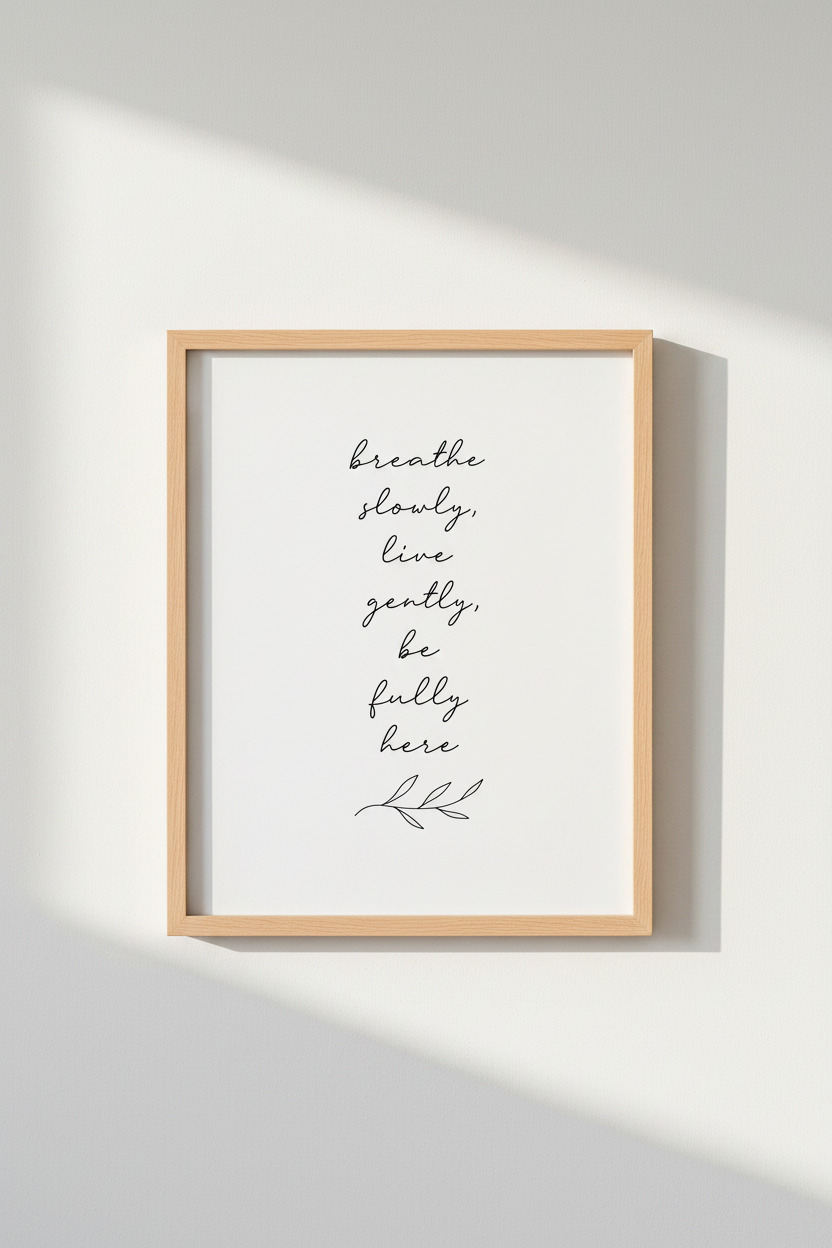 breathe
slowly,
live
gently,
be
fully
here